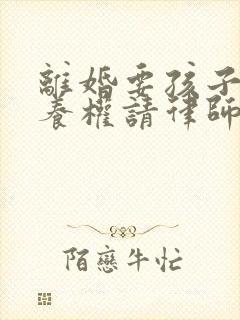 離婚要孩子
養權請律師
陌戀牛忙